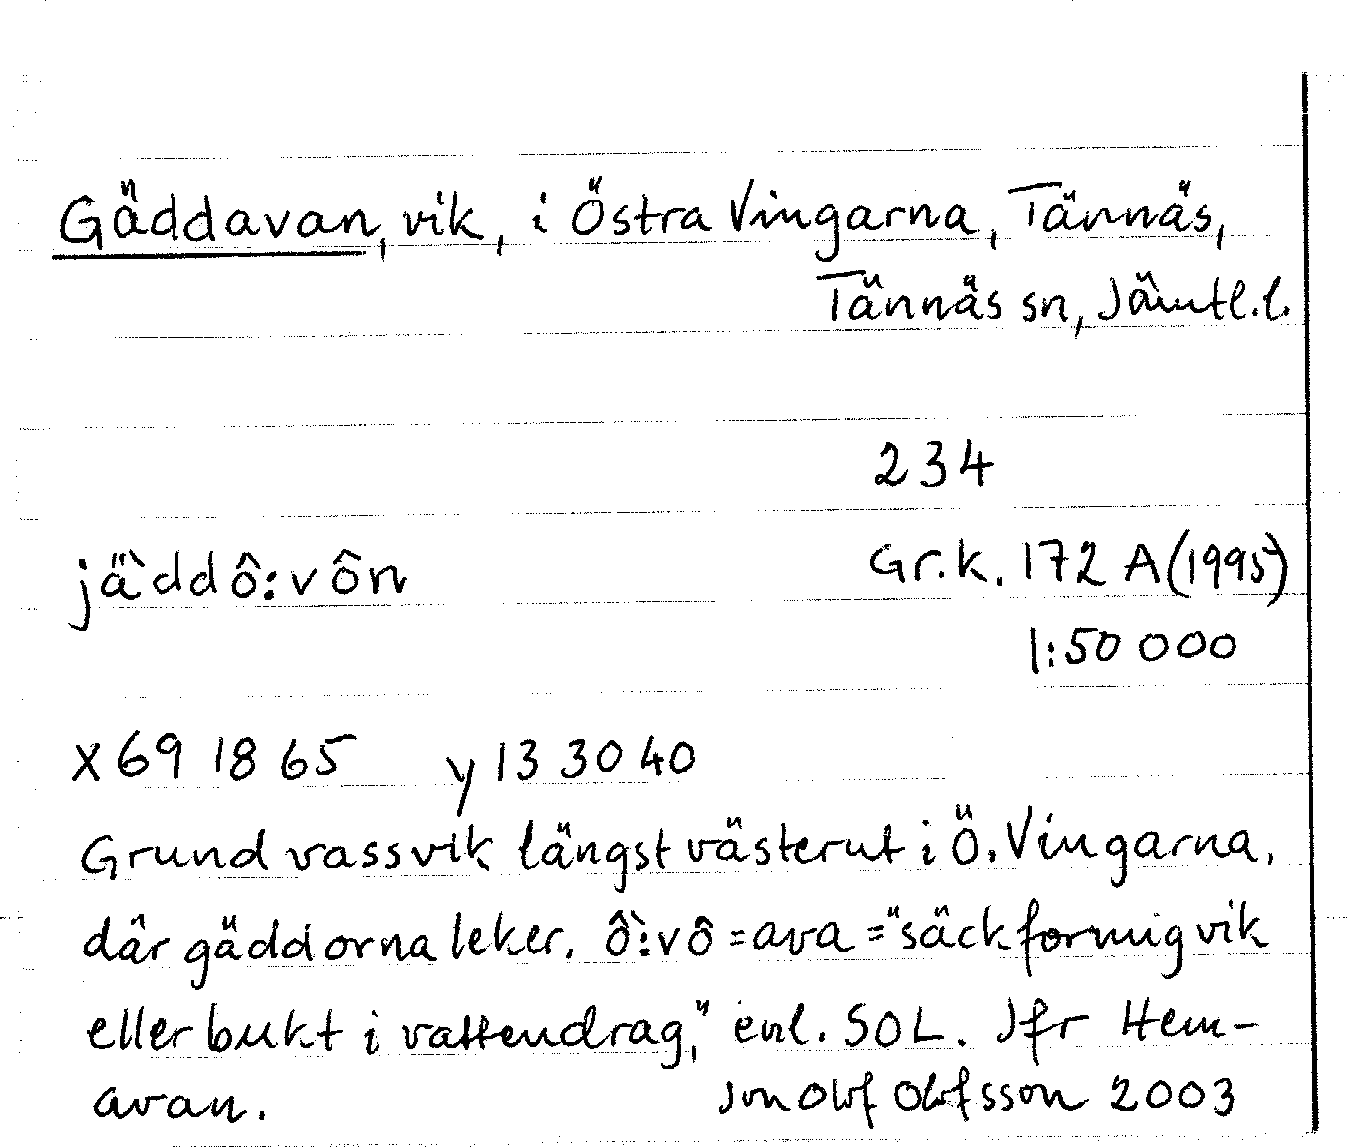 Gäddavan, vik, i Östra Vingarna, Tännäs,
Tännäs sn, Jämtl.l.
234
jä̀ddô:vôn Gr.k. 172 A (1995)
1:50 000
x 69 18 65 y 13 30 40
Grund vassvik längst västerut i Ö. Vingarna,
där gäddorna leker. ồ:vô = ava = "säckformig vik
eller bukt i vattendrag," enl. SOL. Jfr Hem-
avan. Jon Olof Olofsson 2003